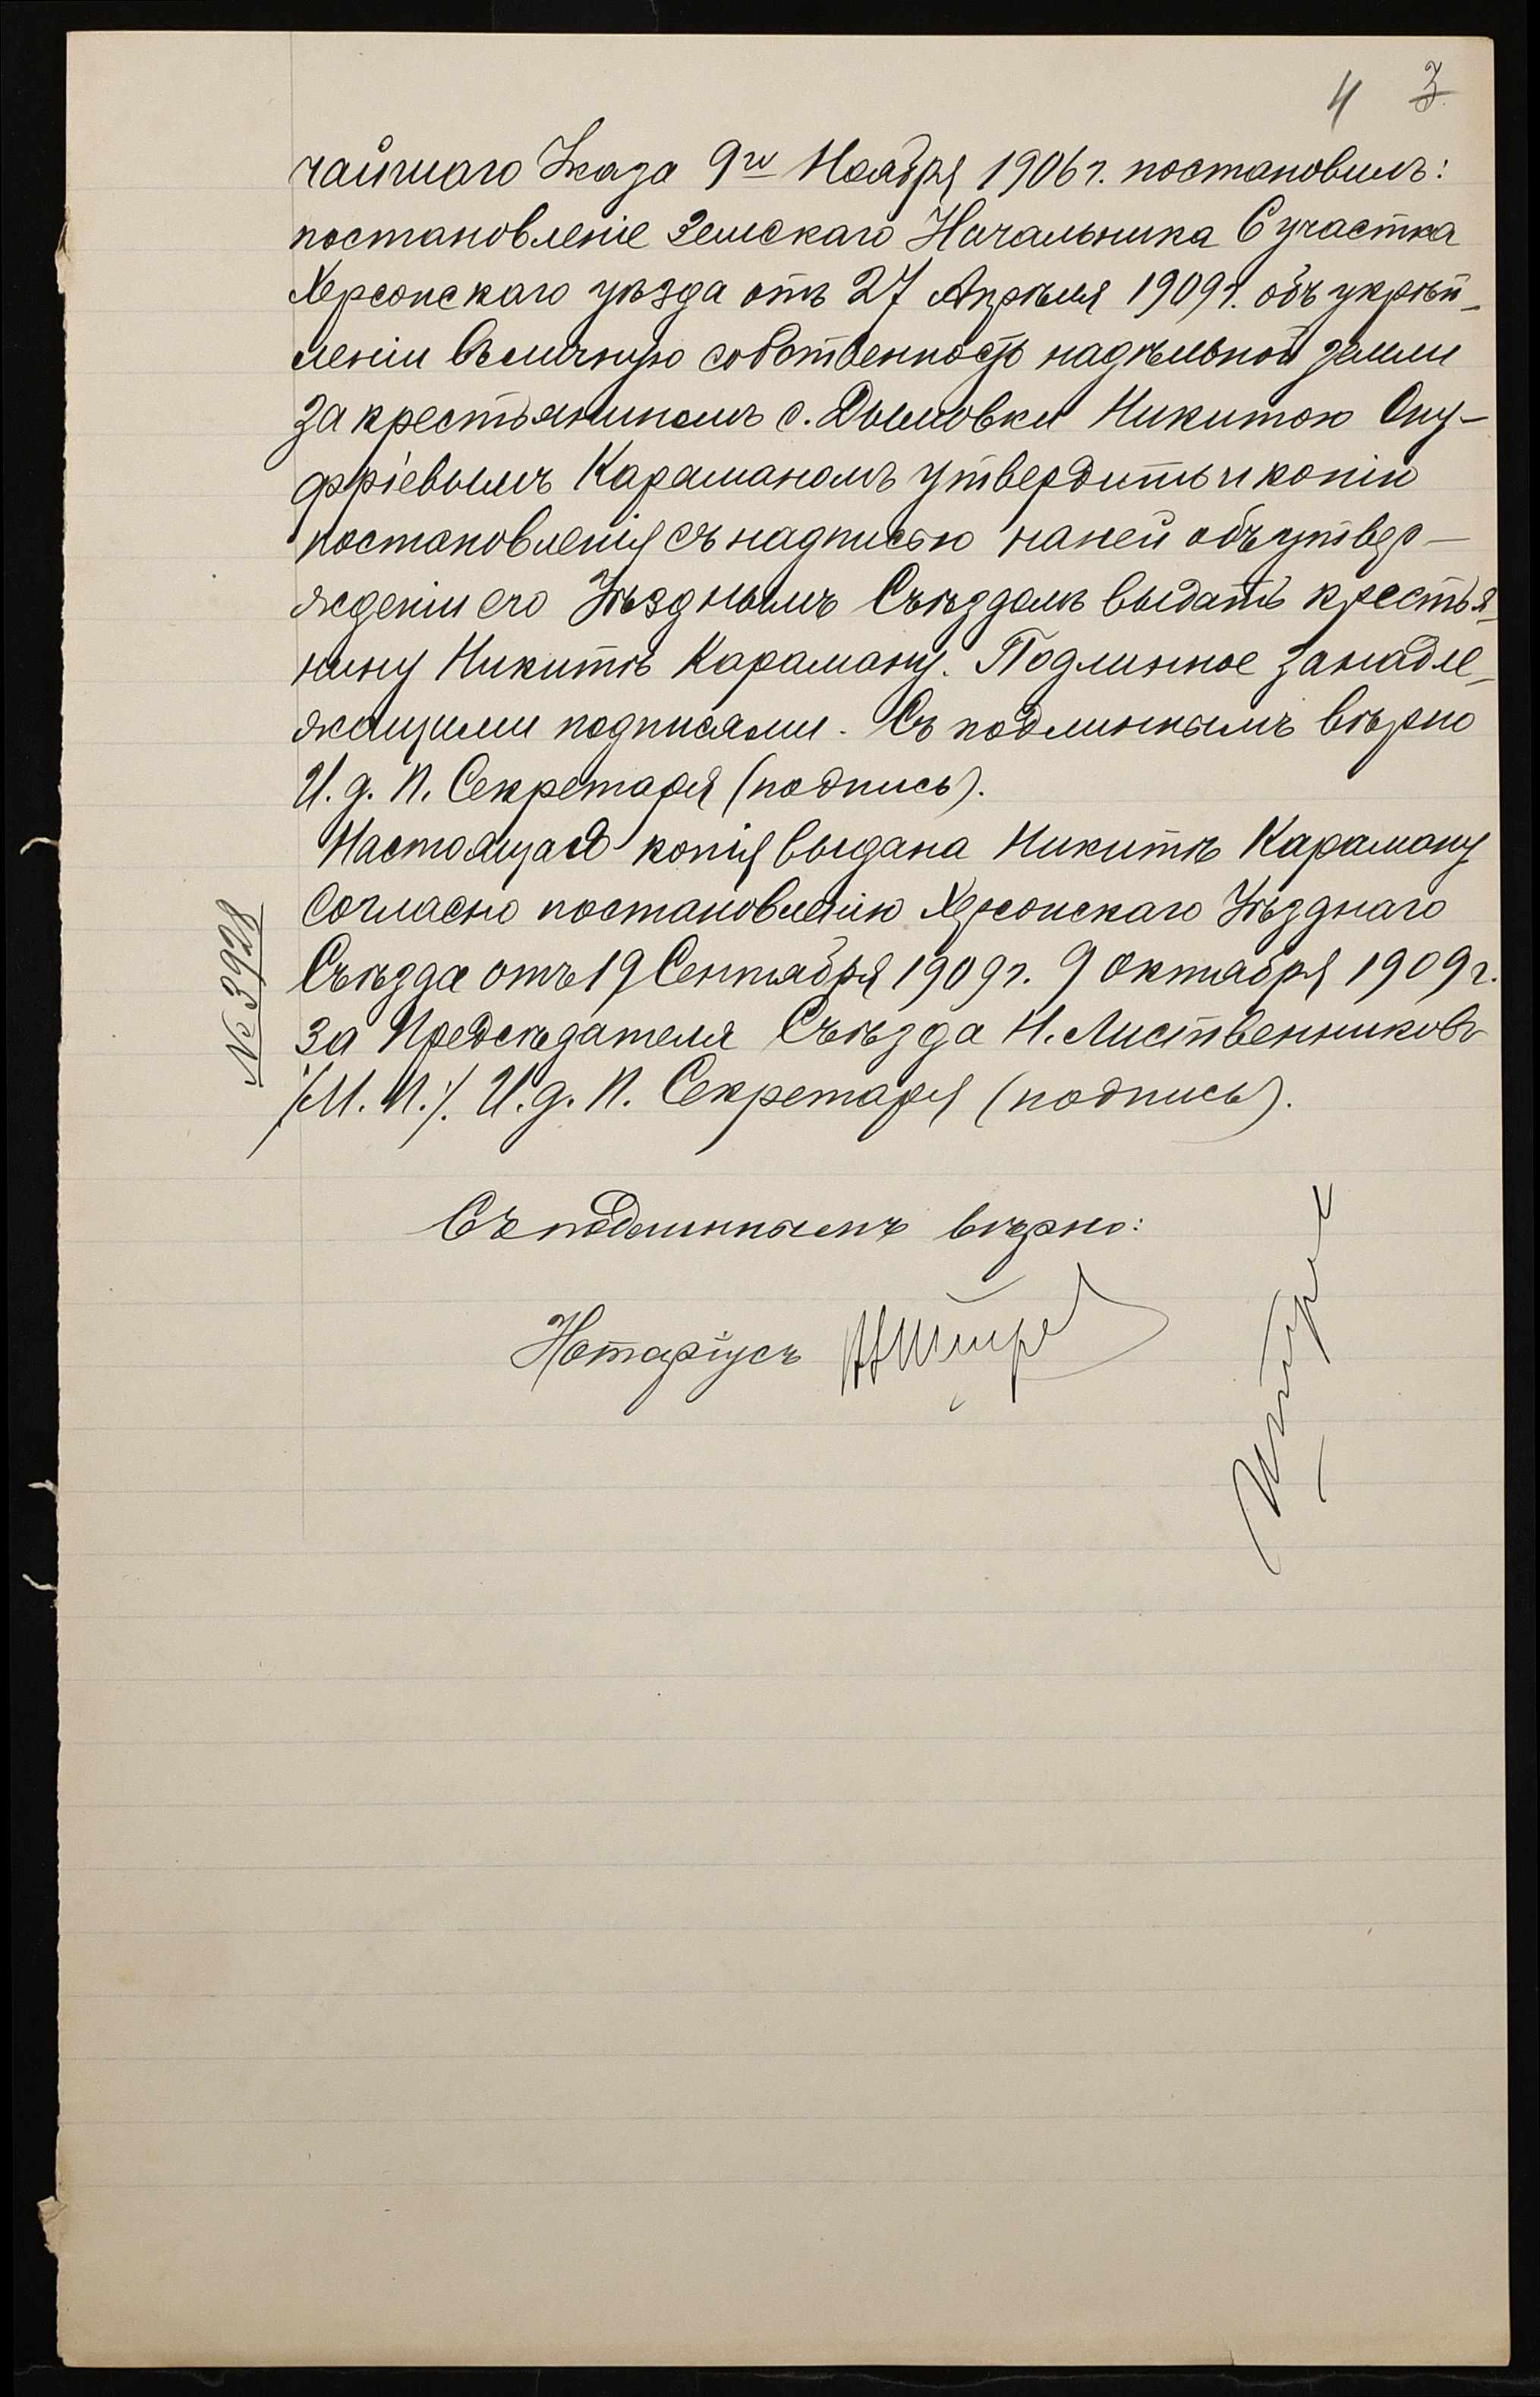 4 3
чайшаго Указа 9го Ноября 1906 г. постановилъ:
постановленіе Земскаго Начальника 6 участка
Херсонскаго уѣзда отъ 27 Апрѣля 1909 г. объ укрѣп-
леніи въ личную собственность надѣльной земли
за крестьяниномъ с. Дымовки Никитою Ону-
фріевымъ Караманомъ утвердить и копію
постановленія съ надписью на ней объ утвер-
жденіи его Уѣзднымъ Съѣздомъ выдать крестья-
нину Никитѣ Караману. Подлинное за надле-
жащими подписями. Съ подлиннымъ вѣрно
И. д. П. Секретаря (подпись).
Настоящая копія выдана Никитѣ Караману
согласно постановленію Херсонскаго Уѣзднаго
Съѣзда отъ 19 Сентября 1909 г. 9 Октября 1909 г.
№ 3928
За Предсѣдателя Съѣзда Н. Лиственниковъ
/М. П./. И. д. П. Секретаря (подпись).
Съ подлиннымъ вѣрно:
Нотаріусъ